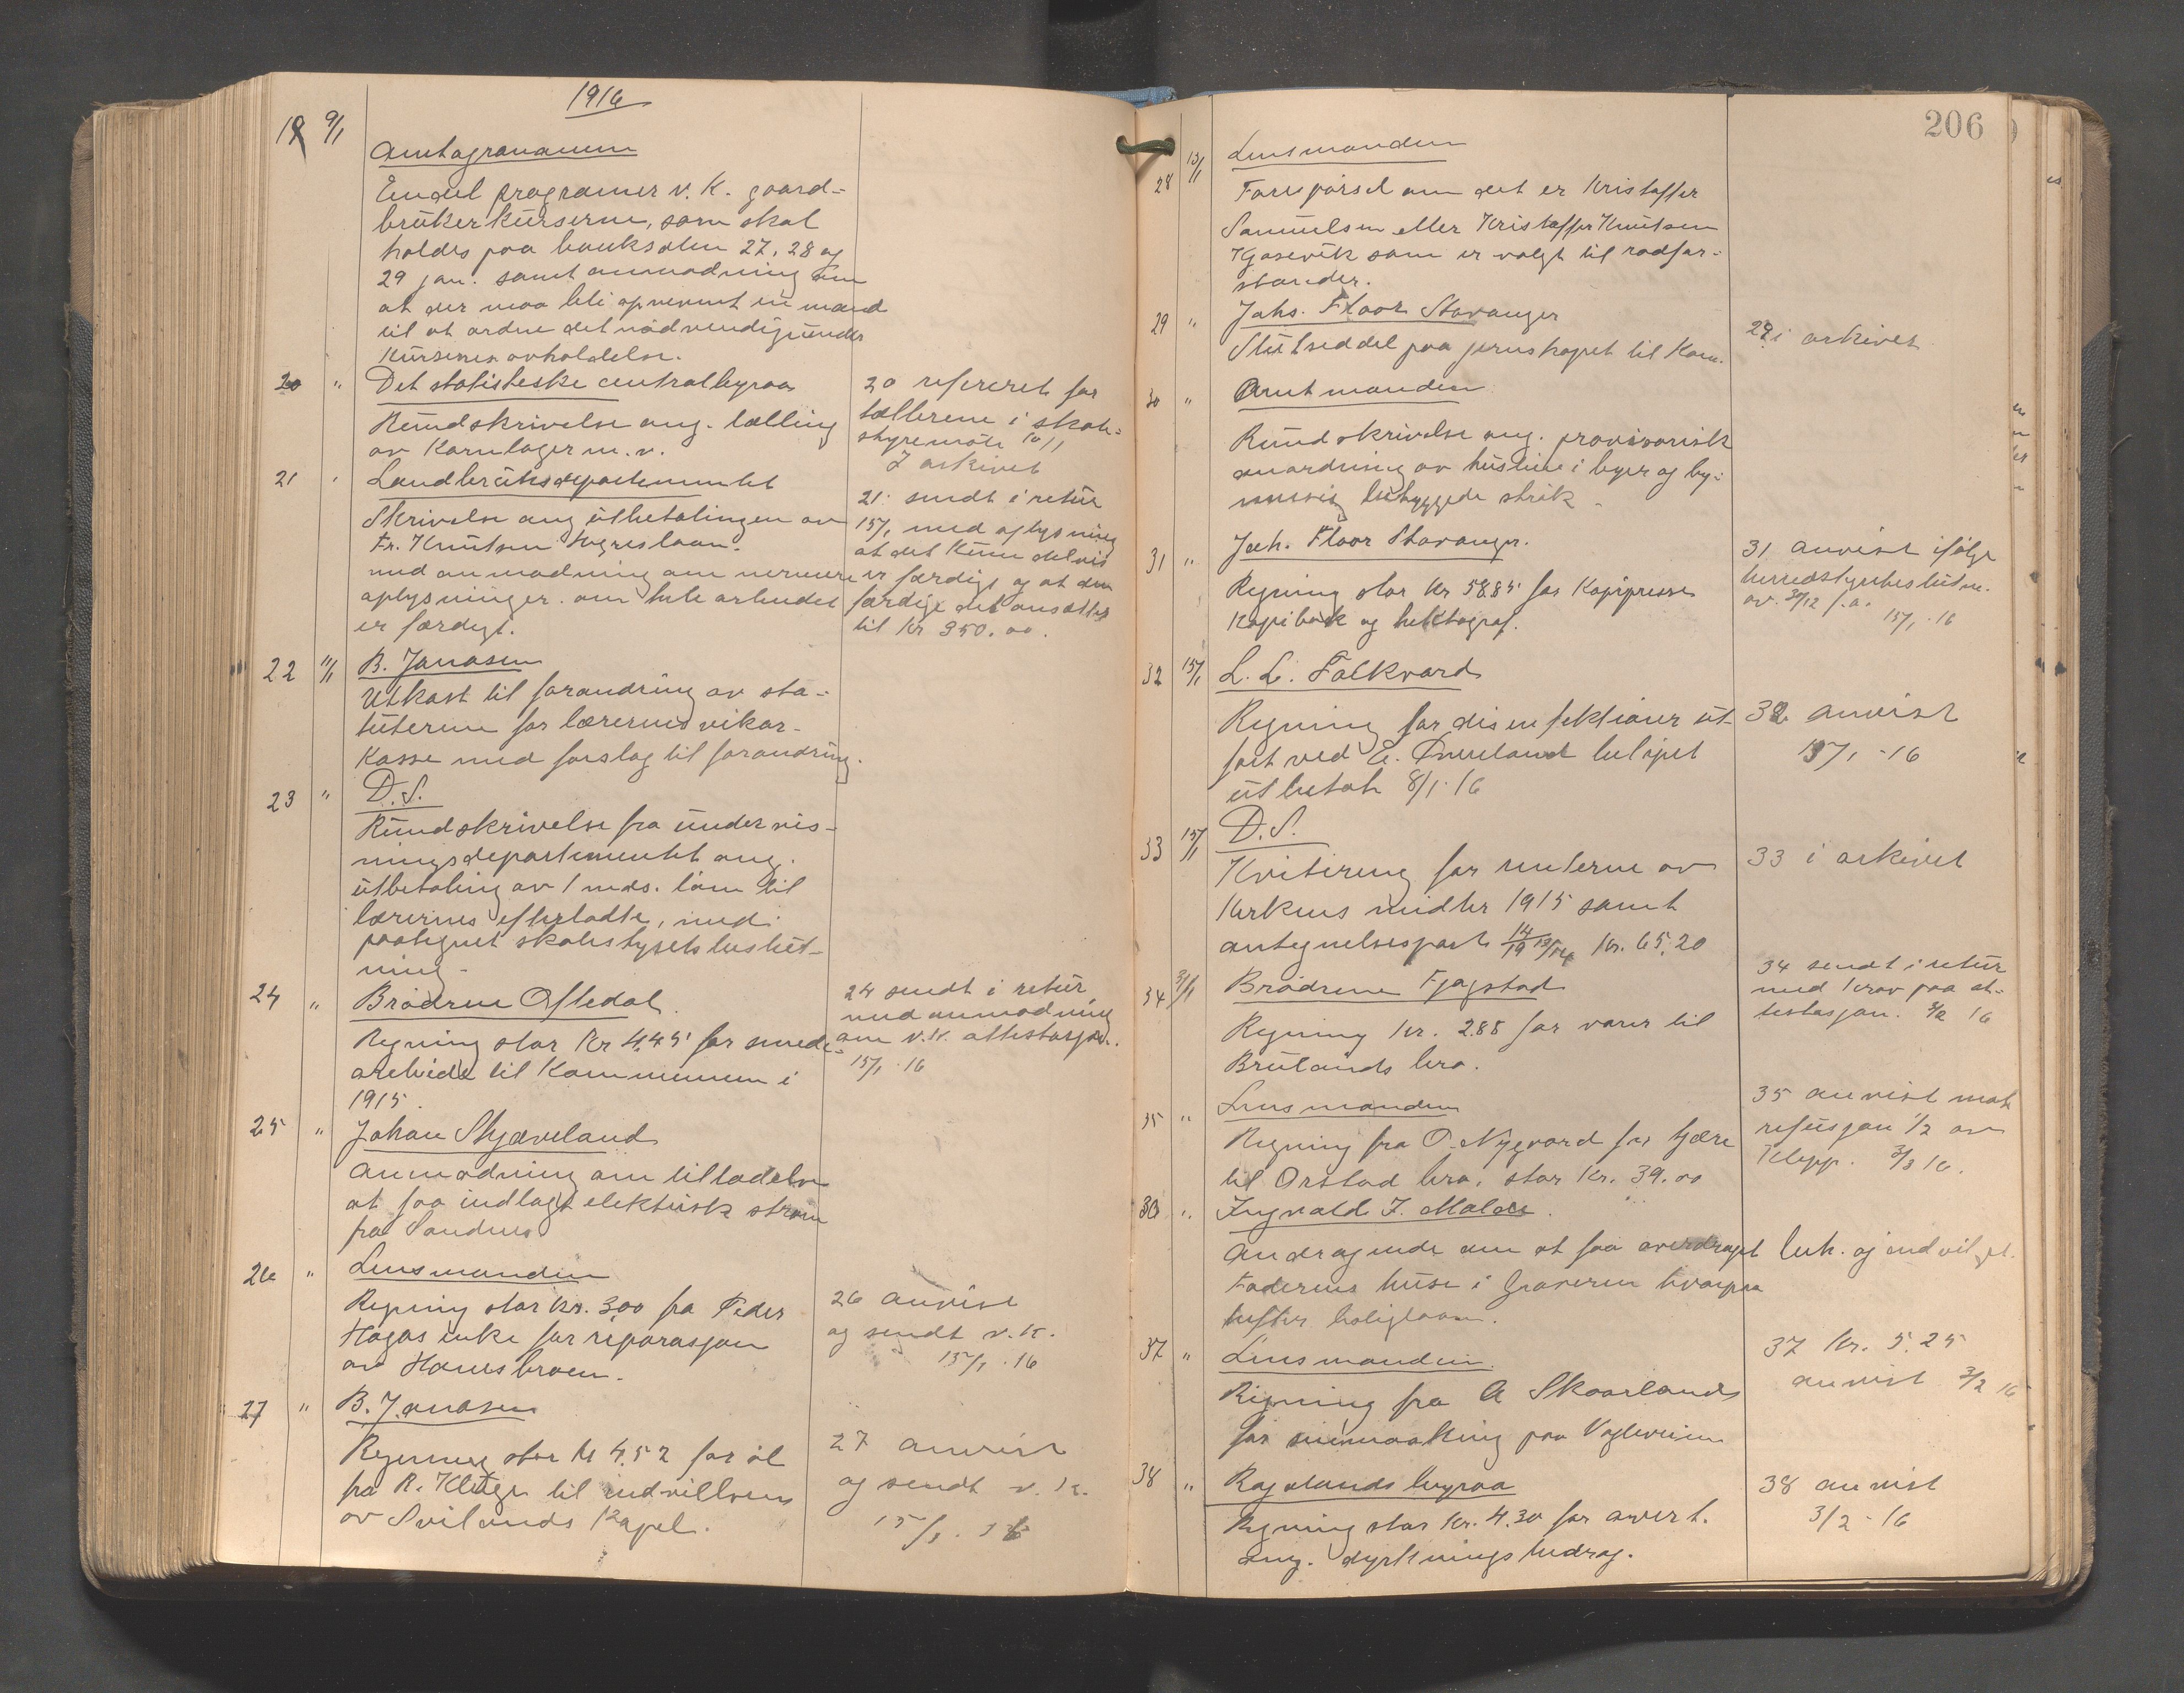 1916
19 9/1
Amtagronomen
Endel programer v. K. gaard-
brukerkurserne, som skal
holdes paa banksalen 27, 28 og
29 jan. samt anmodning om
at der maa bli opnevnt en mand
til at ordne det nødvendige under
Kursenes avholdelse.
20 " Det statistiske centralbyraa
Rundskrivelse ang. tælling
av Kornlager m. v.
20 refereret for
tællerene i skole-
styremøte 10/1
I arkivet
21 " Landbruksdepartementet
Skrivelse ang utbetalingen av
Fr. Knutsen Hogreslaan.
med anmodning om nermere
oplysninger om hele arbeidet
er færdigt.
21 sendt i retur
15/1 med oplysning
at det kun delvis
er færdigt og at den
færdige del ansættes
til Kr 350.00.
22 11/1 B. Jonasen
Utkast til forandring av sta-
tuterne for lærernes vikar-
kasse med forslag til forandring.
23 " D. S.
Rundskrivelse fra undervis-
ningsdepartementet ang.
utbetaling av 1 mds. løn til
lærernes efterladte, med
paategnet skolestyrets beslut-
ning.
24 " Brødrene Oftedal.
Regning stor Kr 4,45 for smede-
arbeide til Kommunen i
1915.
24 sendt i retur
med anmodning
om v. K. attestasjon.
15/1 16
25 " Johan Skjæveland
Anmodning om tilladelse
at faa indlagt elektrisk strøm
fra Sandnes
26 " Lensmanden
Regning stor Kr. 3,00 fra Peder
Hogas enke for reparasjon
av Hanesbroen.
26 anvist
og sendt v. K.
15/1 . 16
27 " B. Jonasen
Regning stor Kr 4.52 for øl
fra R. Kluge til indvillsen
av Svilands Kapel.
27 anvist
og sendt v. K.
15/1 . 16
206
28 13/1 Lensmanden
Forespørsel om det er Kristoffer
Samuelsen eller Kristoffer Knutsen
Kjosevik som er valgt til rodfor-
stander.
29 " Johs. Floor Stavanger
Slutseddel paa jernskapet til Kom.
29 i arkivet
30 " Amtmanden
Rundskrivelse ang. provisorisk
anordning av husleie i byer og by-
mæssig bebyggede strøk.
31 " Joh. Floor Stavanger.
Regning stor Kr 58.85 for Kopipresse
Kopibok og hektograf.
31 anvist ifølge
herredstyrebeslutn.
av 30/12 f.a.
15/1 . 16
32 15/1 L. L. Folkvord
Regning for disenfektioner ut-
ført ved E. Omeland beløpet
utbetalt 8/1 16
32 anvist
15/1 - 16
33 15/1 D. S.
Kvitering for renterne av
Kirkens midler 1915 samt
antegnelsespost 14/19 Kr. 65,20
33 i arkivet
34 31/1 Brødrene Fjogstad
Regning Kr. 2.88 for varer til
Brulands bro.
34 sendt i retur
med krav paa at-
testasjon. 3/2 16
35 " Lensmanden
Regning fra O. Nygaard for tjære
til Orstad bro. stor Kr. 39.00
35 anvist mot
refusjon 1/2 av
Klepp. 3/3 16.
36 " Ingvald I. Malde.
Andragende om at faa overdraget
Faderens huse i Graveren hvorpaa
hefter boliglaan.
beh. og indvilget.
37 " Lensmanden.
Regning fra A Skaarlands
for snemaaking paa Vagleveien
37 Kr. 5.25
anvist 3/2 16
38 " Rogalands byraa
Regning stor Kr. 4.30 for avert.
ang. dyrkningsbidrag.
38 anvist
3/2 - 16